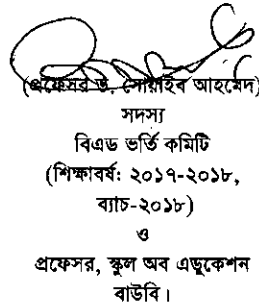 (প্রফেসর ড. সোয়াইব আহমেদ)
সদস্য
বিএড ভর্তি কমিটি
(শিক্ষাবর্ষ: ২০১৭-২০১৮,
ব্যাচ-২০১৮)
ও
প্রফেসর, স্কুল অব এডুকেশন
বাউবি।